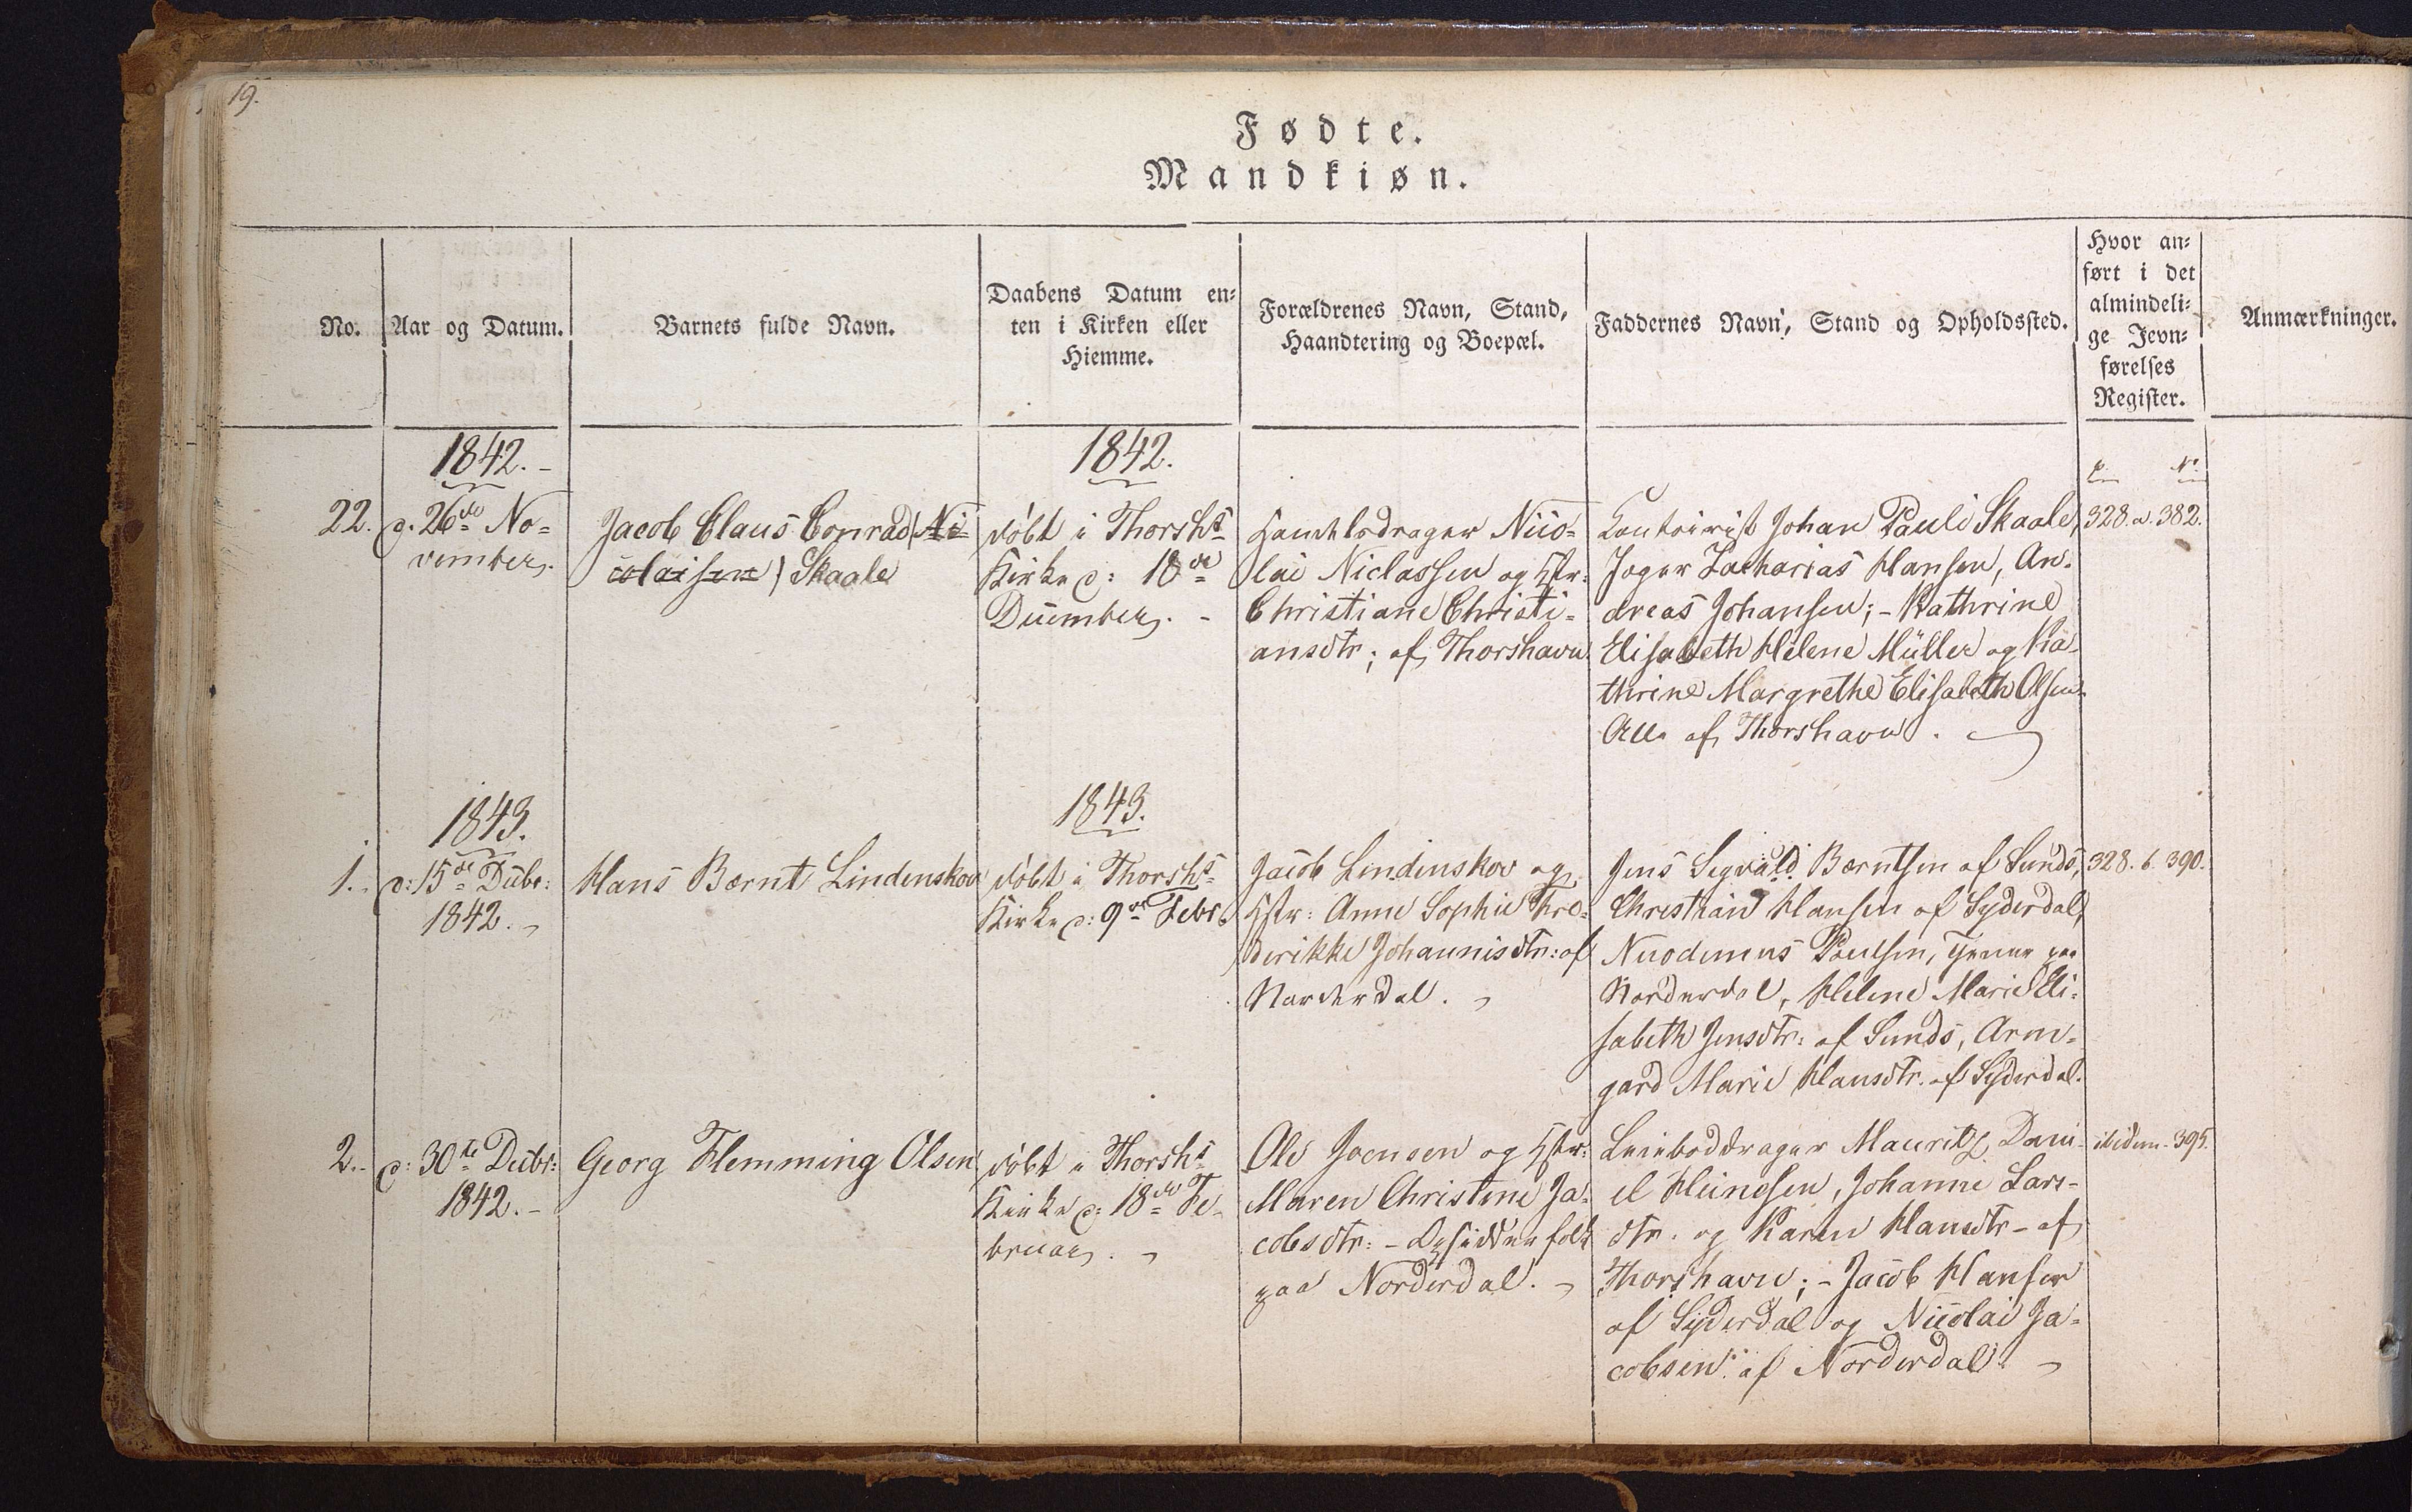 19.
Fødte.
Mandkiøn.
No.
Aar og Datum.
Barnets fulde Navn.
Daabens Datum en-
ten i Kirken eller
Hiemme.
Forældrenes Navn, Stand,
Haandtering og Boepæl.
Faddernes Navn, Stand og Opholdssted.
Hvor an-
ført i det
almindeli-
ge Jevn-
førelses
Register.
Anmærkninger.
1842.
22.
d. 26de No-
vember.
Jacob Claus Conrad (Ni-
colaisen) Skaale
1842.
døbt i Thorshs
Kirke d: 18de
December. -
Nico-
lai Niclassen og Hstr:
Christiane Christi-
ansdtr; af Thorshavn.
Contoirist Johan Pauli Skaale,
Jæger Zacharias Hansen, An-
dreas Johansen; - Kathrine
Elisabeth Helene Müller og Ka-
thrine Margrethe Elisabeth Olsen.
Alle af Thorshavn.
P. No
328. a. 382.
1843.
1.
d: 15de Decbr:
1842.
Hans Bærnt Lindenskov
1843.
døbt i Thorshs
Kirke d: 9de Febr.
Jacob Lindenskov og
Hstr: Anne Sophie Fre-
derikke Johannisdtr: af
Norderdal.
Jens Sigvald Bærntsen af Sunds,
Christian Hansen af Syderdal,
Nicodemus Poulsen, paa
Norderdal, Helene Marie Eli-
sabeth Jensdtr: af Sunds, Arm-
gard Marie Hansdtr. af Syderdal.
328. b. 390.
2.
d: 30te Decbr:
1842. -
Georg Flemming Olsen
døbt i Thorshs
Kirke d: 18de Fe-
bruar.
Ole Joensen og Hstr:
Maren Christine Ja-
cobsdtr: -
paa Norderdal.
Mauritz Dani-
el Heinesen, Johanne Lars-
dtr. og Karen Hansdtr - af
Thorshavn; - Jacob Hansen
af Syderdal og Nicolai Ja-
cobsen: af Norderdal.
ibidem. 395.